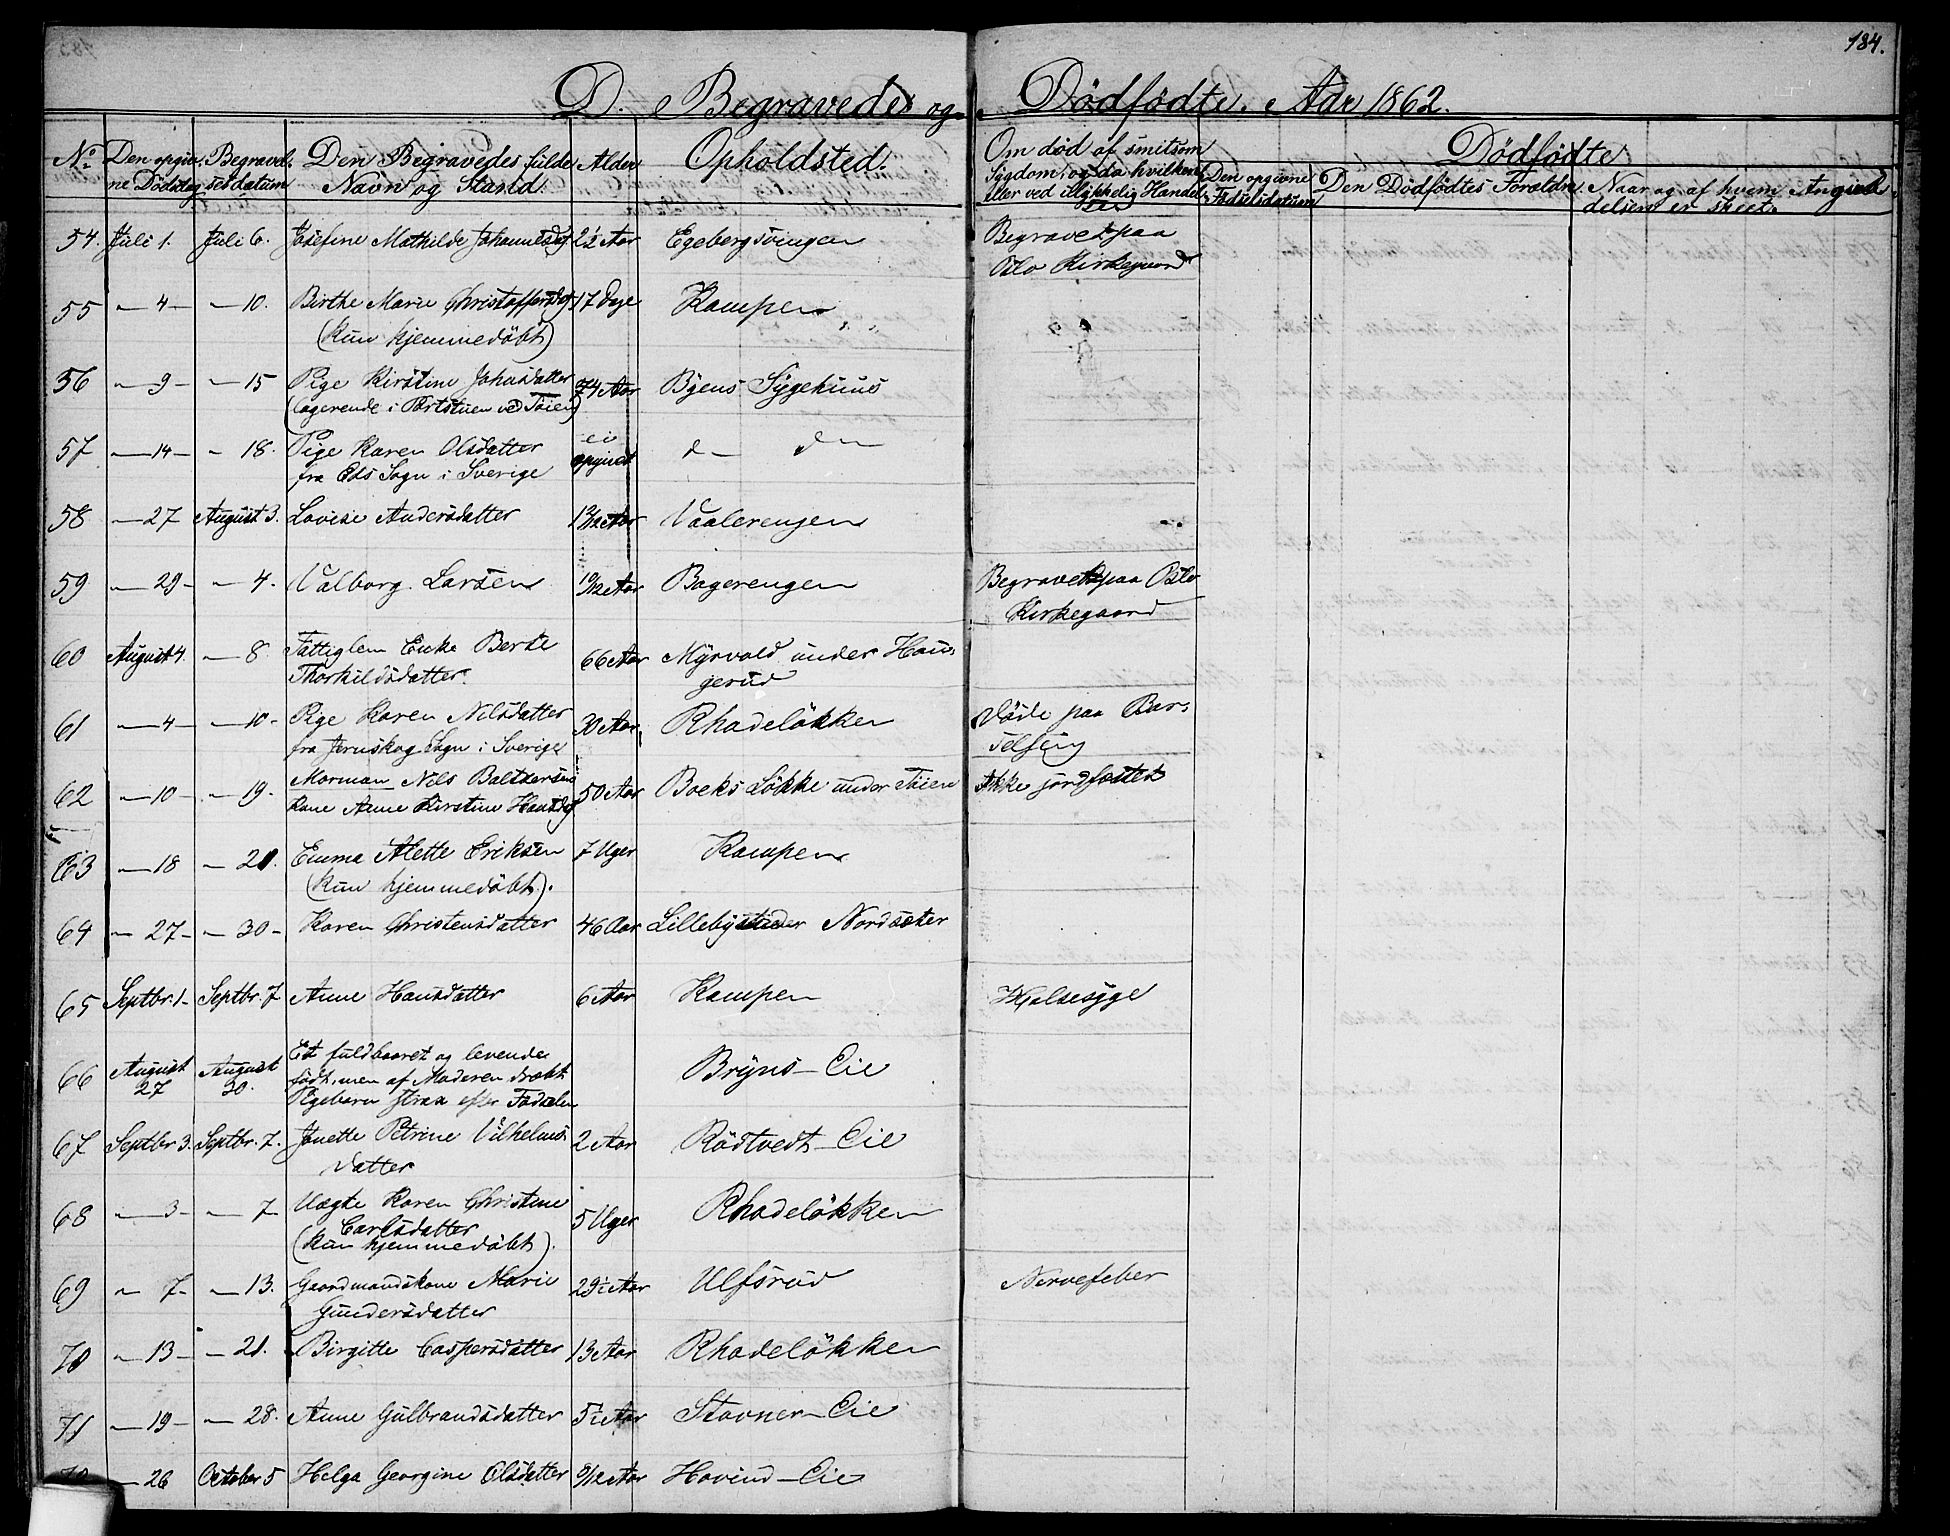 184.
D. Begravede og Dødfødte. Aar 1862.
No Den opgivne Dødsdag Begravelsesdatum Den Begravedes fulde Navn og Stand. Alder Opholdsted. Om død af smitsom Sygdom, og da hvilken eller ved ulykkelig Handelse
Dødfødte
Den opgivne Fødselsdatum Den Dødfødtes Forældre. Naar og af hvem Angivelsen er skeet.
54. Juli 1. Juli 6. Josefine Mathilde Johannesdtr 2½ Aar Egebergsvingen Begravet paa
Oslo Kirkegaard
55 — 4 — — 10. Birthe Marie Christoffersdtr 17 Dage Kampen
(kun hjemmedöbt)
56 — 9 — — 15 Pige Kirstine Johnsdatter 74 Aar Byens Sygehuus
(logerende i Portstuen ved Töien)
57 — 14 — — 18. Pige Karen Olsdatter ei opgivet d — d —
fra Eds Sogn i Sverige
58 — 27 August 3. Lovise Andersdatter 1 2/12 Aar Vaalerengen
59 — 29 — — 4. Valborg Larsen 10/12 Aar Bagerengen Begravet paa Oslo
Kirkegaard
60 August 4. — 8. Fattiglem Enke Berte 66 Aar Myrvold under Hau-
Thorkildsdatter. gerud
61 — 4 — — 10 — Pige Karen Nilsdatter 30 Aar Rhadelökken Døde paa Bar-
fra Jernskog Sogn i Sverige selseng
62 — 10 — — 19. Morman Nils Baltzersens 50 Aar Boeks Lökke under Töien Ikke jordfæstet
Kone Anne Kirstine Hansdtr
63 — 18 — 21. Emma Alette Eriksen 7 Uger Kampen
(kun hjemmedöbt).
64 — 27 — — 30 — Karen Christensdatter 46 Aar Lilleby under Nordsæter
65 Septbr. 1 — Septbr. 7 Anne Hansdatter 6 Aar Kampen Halsesyge
66 August 27 August 30. Et fuldbaaret og levende Bryns — Eie
födt, men af Moderen dræbt
Pigebarn strax efter Födselen
67 Septbr 3. Septbr. 7. Janette Petrine Vilhelms- 2 Aar Rödtvedt — Eie
datter
68 — 3 — — 7 — Uægte Karen Christine 5 Uger Rhadelökken
Carlsdatter
(kun hjemmedöbt).
69 — 7 — — 13. Gaardmandskone Marie 29½ Aar Ulfsrud Nervefeber
Gundersdatter
70 — 13 — — 21. Birgitte Caspersdatter 13 Aar Rhadelökken
71 — 19 — — 28. Anne Gulbrandsdatter 5½ Aar Stovner — Eie
— 26 October 5 Helga Georgine Olsdatter 8/12 Aar Hovind — Eie